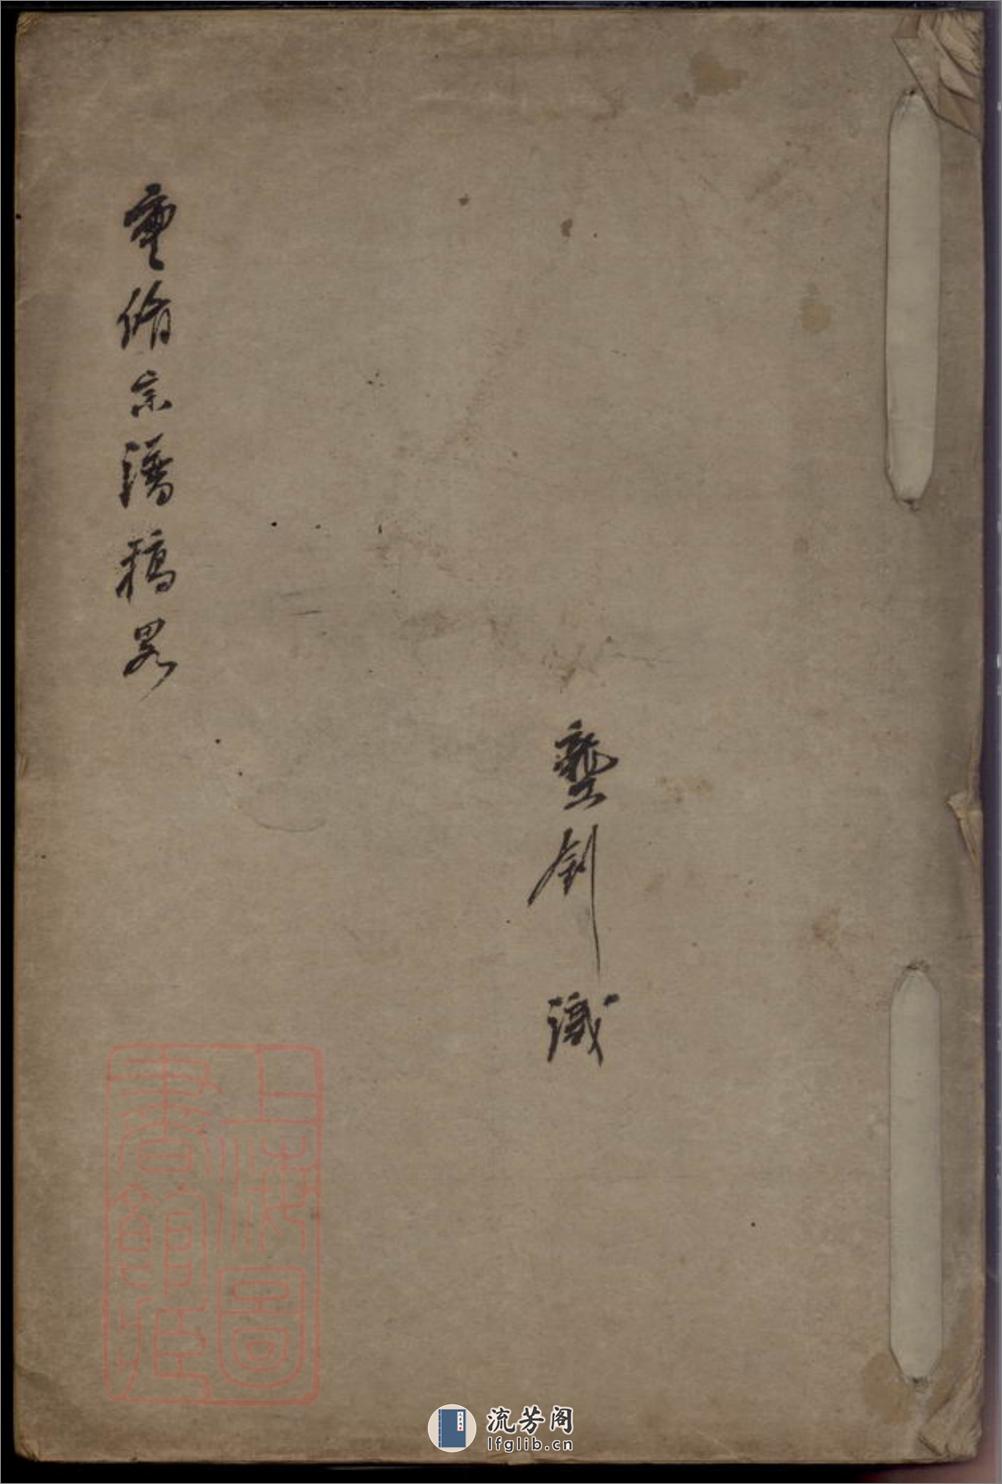 釗識
重脩宗譜稿畧
上海圖
書館藏
流芳阁
lfglib.cn